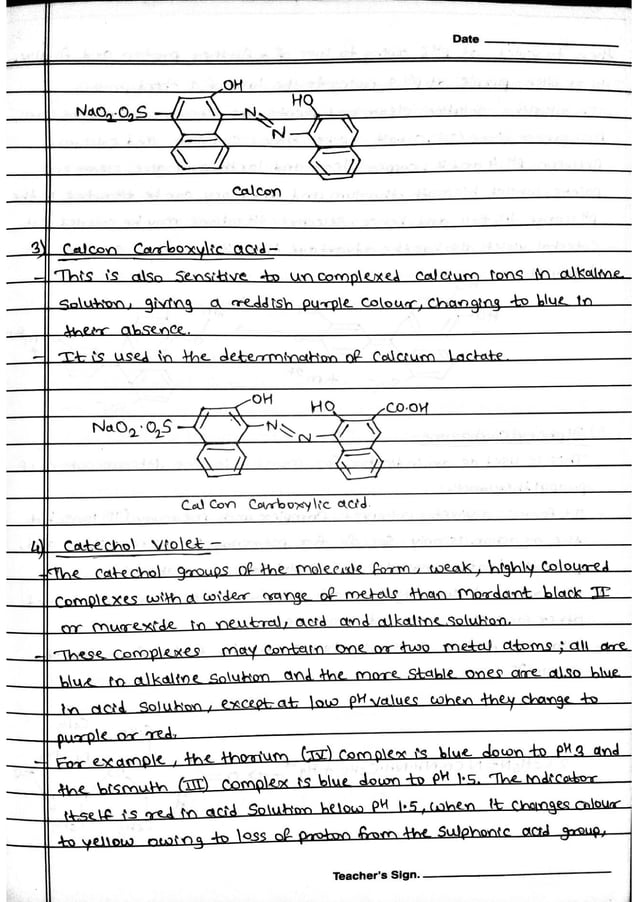 Date
OH
HO
NaO2·O2S
N
N
Calcon
3) Calcon Carboxylic acid-
- This is also sensitive to uncomplexed calcium ions in alkaline
solution, giving a reddish purple colour, changing to blue in
their absence.
- It is used in the determination of Calcium Lactate.
OH
HO
CO·OH
NaO2·O2S
N
N
Cal Con Carboxylic acid.
4) Catechol Violet -
- The catechol groups of the molecule form, weak, highly coloured
complexes with a wider range of metals than Mordant black II
or murexide in neutral, acid and alkaline solution.
- These complexes may contain one or two metal atoms; all are
blue in alkaline solution and the more stable ones are also blue
in acid solution, except at low pH values when they change to
purple or red.
- For example, the thorium (IV) complex is blue down to pH 3 and
the bismuth (III) complex is blue down to pH 1.5. The indicator
itself is red in acid solution below pH 1.5, when it changes colour
to yellow owing to loss of proton from the sulphonic acid group,
Teacher's Sign.